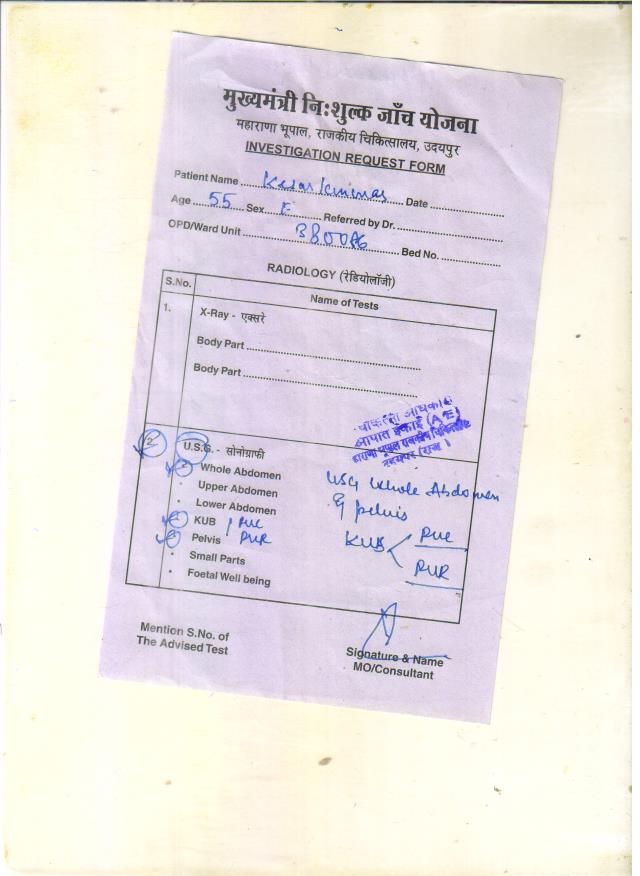 मुख्यमंत्री निःशुल्क जाँच योजना
महाराणा भूपाल, राजकीय चिकित्सालय, उदयपुर
INVESTIGATION REQUEST FORM
Patient Name ........ Date ........
Age 55 Sex F Referred by Dr. ........
OPD/Ward Unit ........ Bed No. ........
RADIOLOGY (रेडियोलॉजी)
S.No. Name of Tests
1. X-Ray - एक्सरे
Body Part ........
Body Part ........
आपात इकाई
2. U.S.G. - सोनोग्राफी
Whole Abdomen USG Whole Abdomen
Upper Abdomen & pelvis
Lower Abdomen
KUB PVC KUB PVC
Pelvis PVR PVR
Small Parts
Foetal Well being
Mention S.No. of
The Advised Test
Signature & Name
MO/Consultant